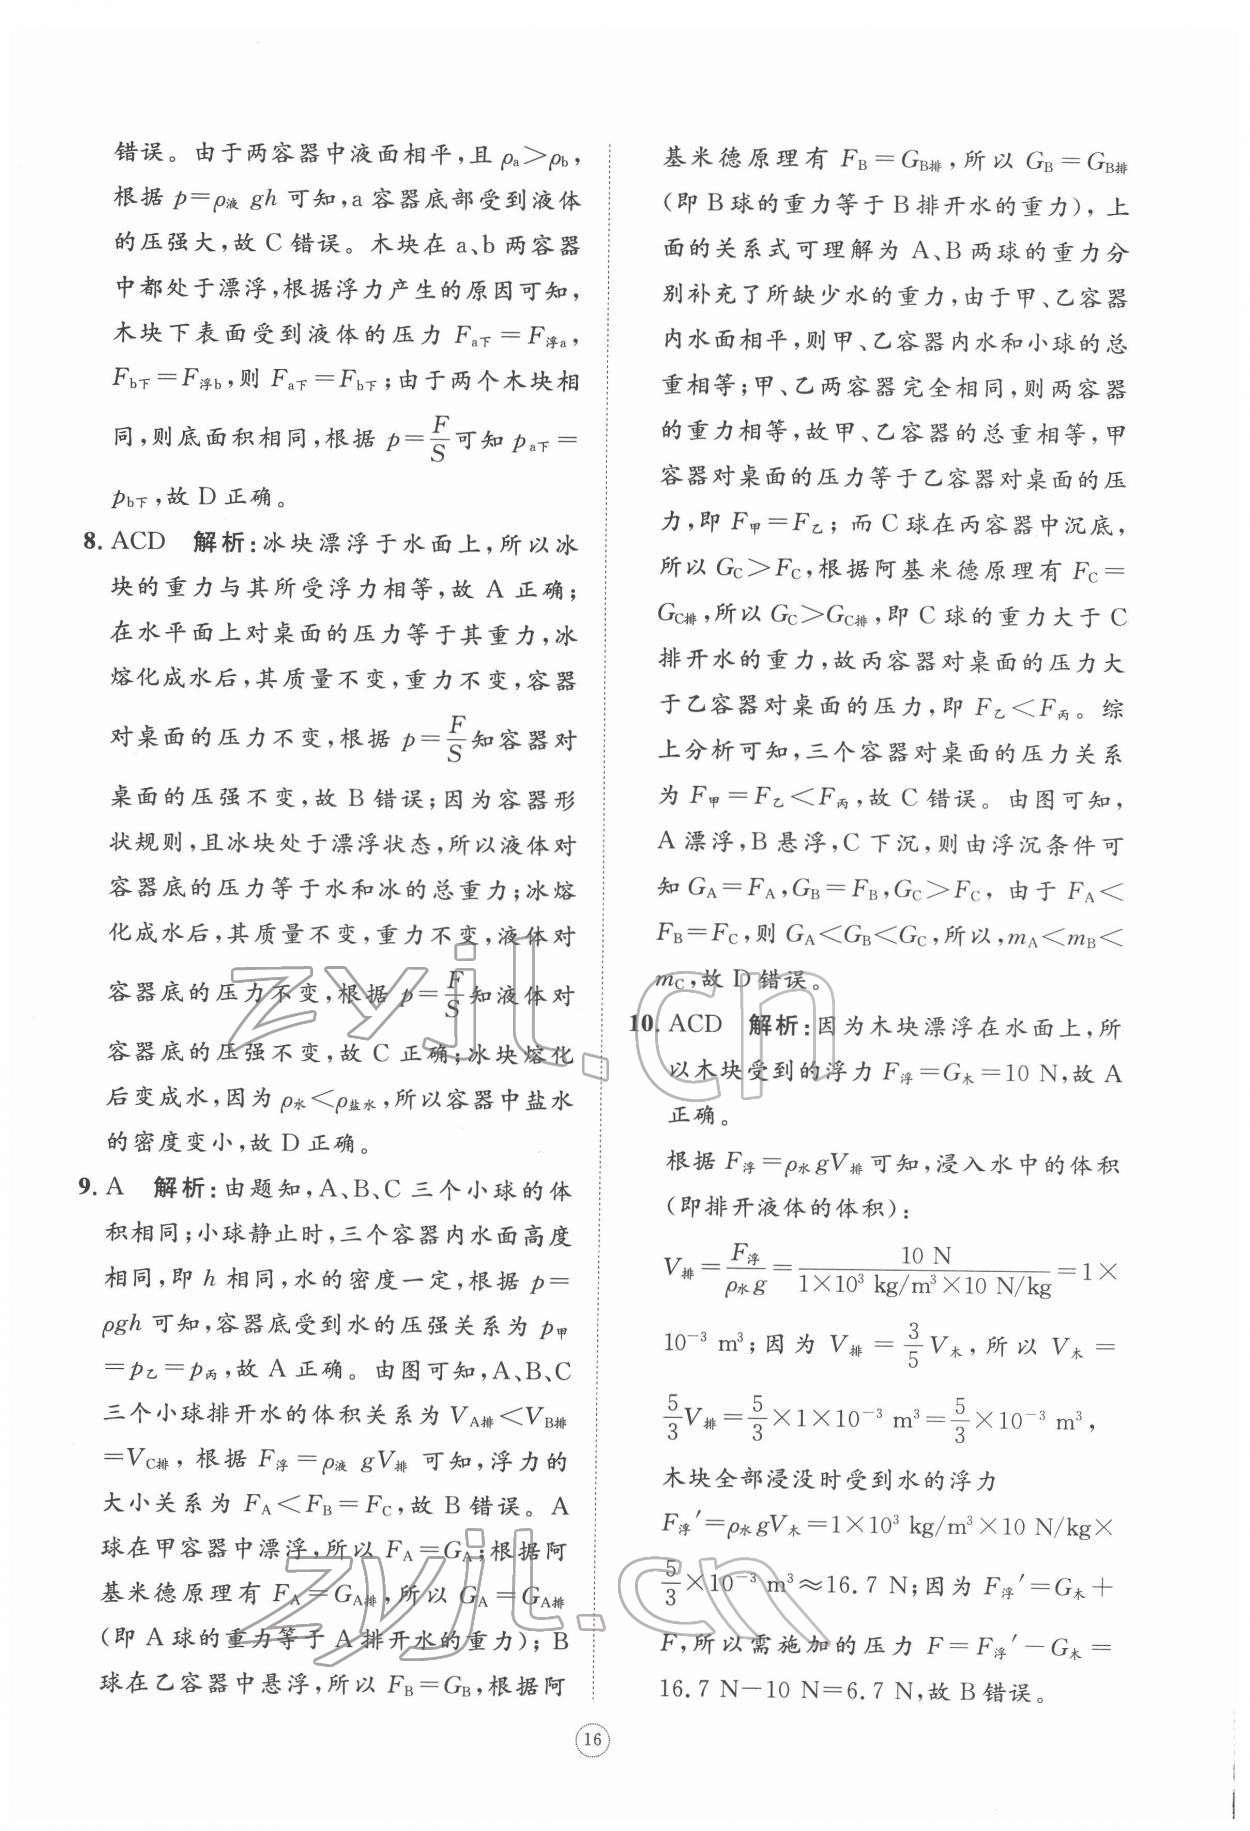 错误。由于两容器中液面相平,且 ρa>ρb,
根据 p=ρ液 gh 可知,a 容器底部受到液体
的压强大,故 C 错误。木块在 a、b 两容器
中都处于漂浮,根据浮力产生的原因可知,
木块下表面受到液体的压力 Fa下=F浮a,
Fb下=F浮b,则 Fa下=Fb下;由于两个木块相
同,则底面积相同,根据 p=F/S可知 pa下=
pb下,故 D 正确。
8. ACD 解析:冰块漂浮于水面上,所以冰
块的重力与其所受浮力相等,故 A 正确;
在水平面上对桌面的压力等于其重力,冰
熔化成水后,其质量不变,重力不变,容器
对桌面的压力不变,根据 p=F/S知容器对
桌面的压强不变,故 B 错误;因为容器形
状规则,且冰块处于漂浮状态,所以液体对
容器底的压力等于水和冰的总重力;冰熔
化成水后,其质量不变,重力不变,液体对
容器底的压力不变,根据 p=F/S知液体对
容器底的压强不变,故 C 正确;冰块熔化
后变成水,因为 ρ水<ρ盐水,所以容器中盐水
的密度变小,故 D 正确。
9. A 解析:由题知,A、B、C 三个小球的体
积相同;小球静止时,三个容器内水面高度
相同,即 h 相同,水的密度一定,根据 p=
ρgh 可知,容器底受到水的压强关系为 p甲
=p乙=p丙,故 A 正确。由图可知,A、B、C
三个小球排开水的体积关系为 VA排<VB排
=VC排,根据 F浮=ρ液 gV排 可知,浮力的
大小关系为 FA<FB=FC,故 B 错误。A
球在甲容器中漂浮,所以 FA=GA;根据阿
基米德原理有 FA=GA排,所以 GA=GA排
(即 A 球的重力等于 A 排开水的重力);B
球在乙容器中悬浮,所以 FB=GB,根据阿
基米德原理有 FB=GB排,所以 GB=GB排
(即 B 球的重力等于 B 排开水的重力),上
面的关系式可理解为 A、B 两球的重力分
别补充了所缺少水的重力,由于甲、乙容器
内水面相平,则甲、乙容器内水和小球的总
重相等;甲、乙两容器完全相同,则两容器
的重力相等,故甲、乙容器的总重相等,甲
容器对桌面的压力等于乙容器对桌面的压
力,即 F甲=F乙;而 C 球在丙容器中沉底,
所以 GC>FC,根据阿基米德原理有 FC=
GC排,所以 GC>GC排,即 C 球的重力大于 C
排开水的重力,故丙容器对桌面的压力大
于乙容器对桌面的压力,即 F乙<F丙。综
上分析可知,三个容器对桌面的压力关系
为 F甲=F乙<F丙,故 C 错误。由图可知,
A 漂浮,B 悬浮,C 下沉,则由浮沉条件可
知 GA=FA,GB=FB,GC>FC,由于 FA<
FB=FC,则 GA<GB<GC,所以,mA<mB<
mC,故 D 错误。
10. ACD 解析:因为木块漂浮在水面上,所
以木块受到的浮力 F浮=G木=10 N,故 A
正确。
根据 F浮=ρ水 gV排 可知,浸入水中的体积
(即排开液体的体积):
V排=F浮/ρ水g=10 N/1×10³ kg/m³×10 N/kg=1×
10⁻³ m³;因为 V排=3/5V木,所以 V木=
5/3V排=5/3×1×10⁻³ m³=5/3×10⁻³ m³,
木块全部浸没时受到水的浮力
F浮′=ρ水 gV木=1×10³ kg/m³×10 N/kg×
5/3×10⁻³ m³≈16.7 N;因为 F浮′=G木+
F,所以需施加的压力 F=F浮′-G木=
16.7 N-10 N=6.7 N,故 B 错误。
16
zyjl.cn
zyjl.cn